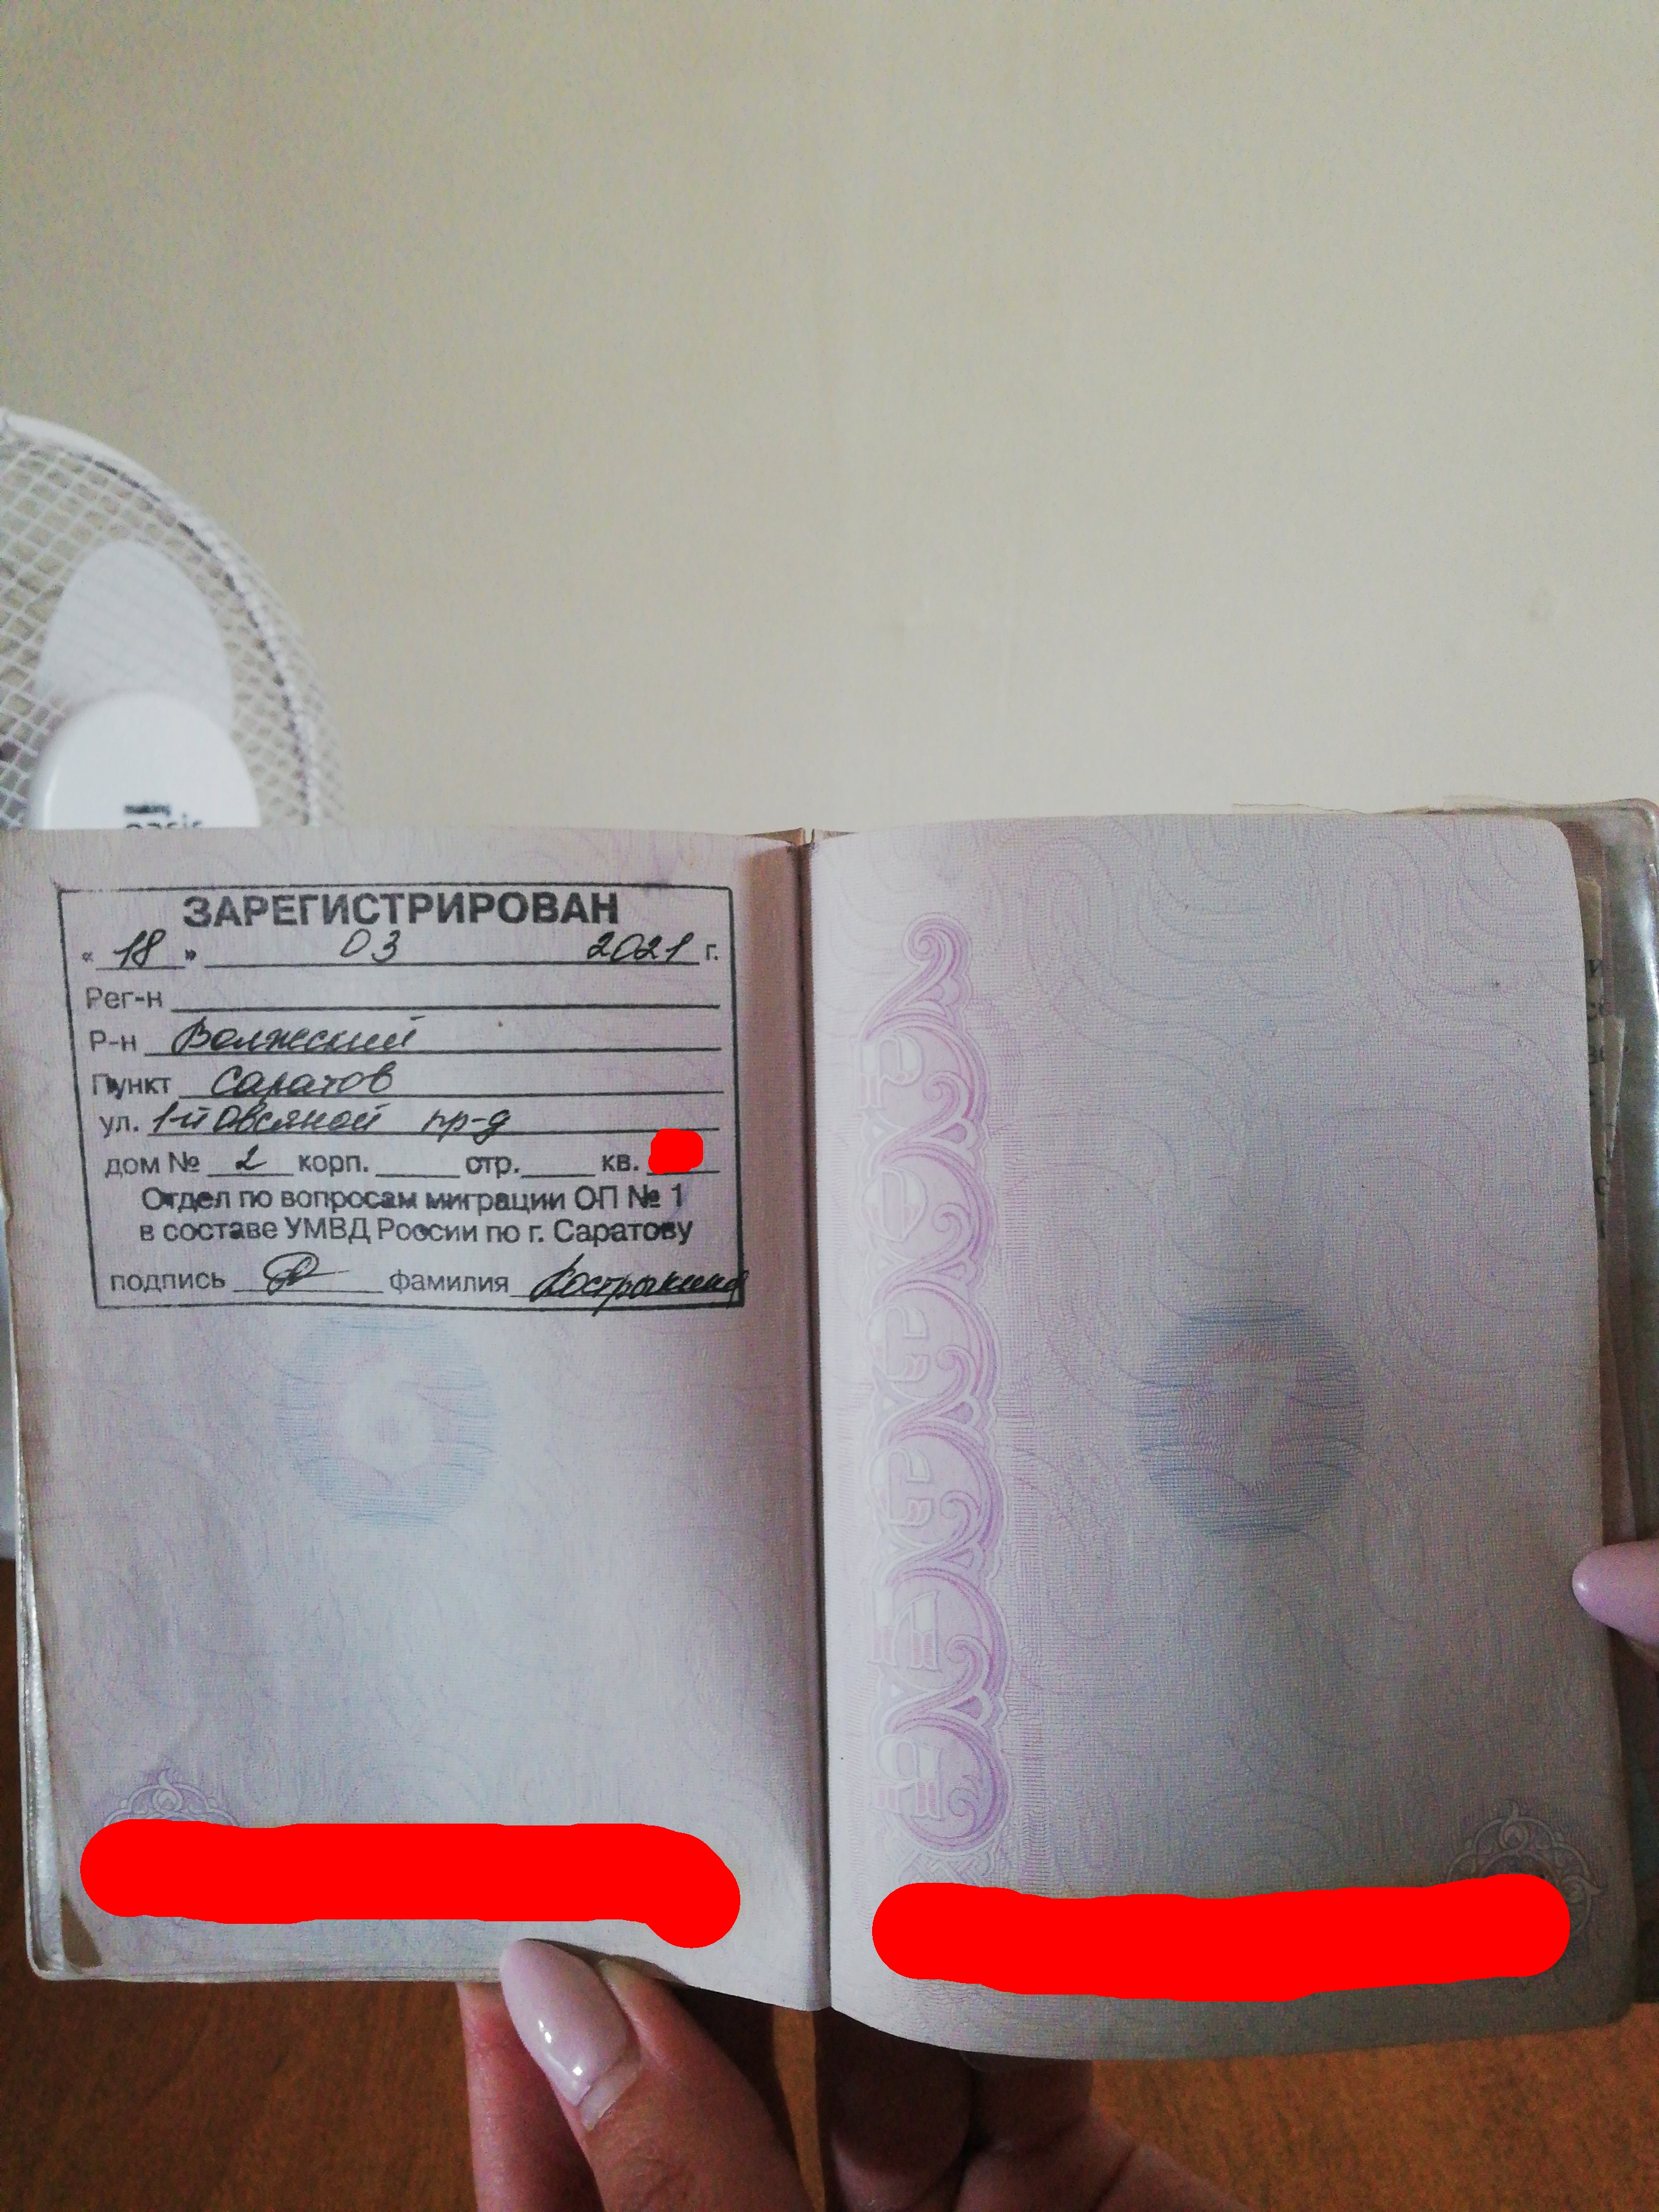 ЗАРЕГИСТРИРОВАН
« 18 » 03 2021 г.
Рег-н
Р-н Волжский
Пункт Саратов
ул. 1-й Овсяной пр-д
дом № 2 корп. стр. кв.
Отдел по вопросам миграции ОП № 1
в составе УМВД России по г. Саратову
подпись фамилия Кострыкина